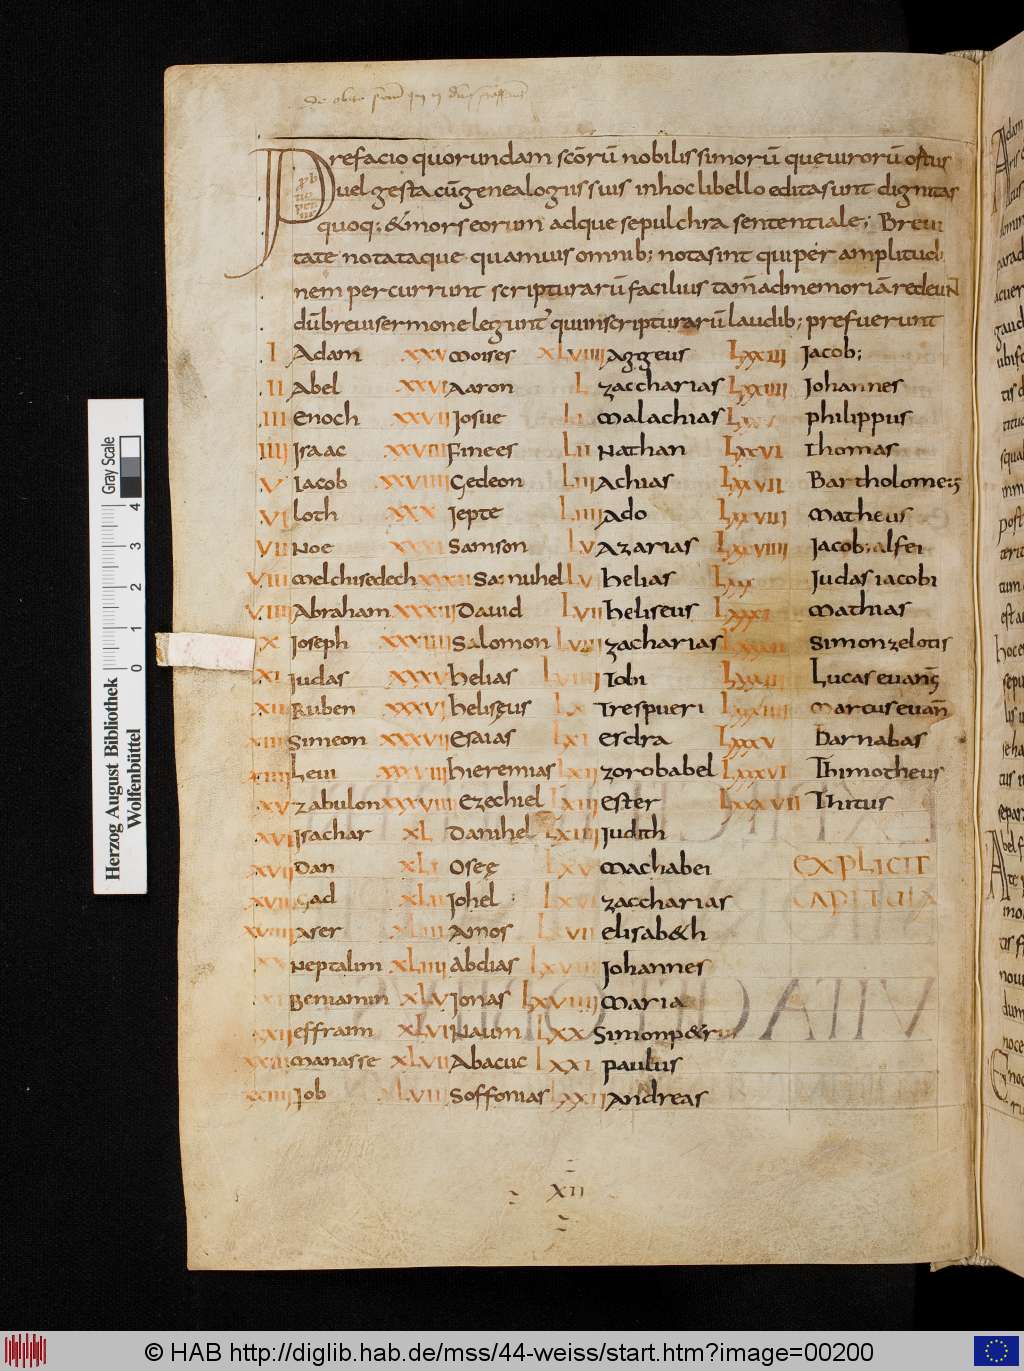 Prefacio quorundam scorū nobilissimorū queuirorū ortus
uel gesta cū genealogiis suis inhoc libello edita sunt dignitas
quoq; & mors eorum adque sepulchra sententiale; Breui
tate notataque quamuis omnib; nota sint qui per amplitudi
nem percurrunt scripturarū facilius tam̄ ad memoriā redeuN
dū breui sermone leguntr qui inscripturarū laudib; prefuerunt
I Adam XXV Moises XLVIIII Aggeus LXXIII Jacob;
II Abel XXVI Aaron L zaccharias LXXIIII Johannes
III Enoch XXVII Josue LI Malachias LXXV philippus
IIII Isaac XXVIII Finees LII Nathan LXXVI Thomas
V Iacob XXVIIII Gedeon LIII Achias LXXVII Bartholome;
VI loth XXX Iepte LIIII Ado LXXVIII Matheus
VII Noe XXXI Samson LV Azarias LXXVIIII Jacob; alfei
VIII Melchisedech XXXII Samuhel LV helias LXXX Judas iacobi
VIIII Abraham XXXIII Dauid LVII heliseus LXXXI Mathias
X Joseph XXXIIII Salomon LVIII zacharias LXXXII Simon zelotis
XI Judas XXXV helias LVIIII Tobi LXXXIII Lucas euang̅
XII Ruben XXXVI heliseus LX Tres pueri LXXXIIII Marcus euan̅
XIII Simeon XXXVII Esaias LXI Esdra LXXXV Barnabas
XIIII Leui XXXVIII hieremias LXII zorobabel LXXXVI Thimotheus
XV zabulon XXXVIIII Ezechiel LXIII Ester LXXXVII Thitus
XVI Isachar XL Danihel LXIIII Judith
XVII Dan XLI Oseę LXV Machabei EXPLICIT
XVIII Gad XLII Johel LXVI zaccharias CAPITULA
XVIIII Aser XLIII Amos LXVII elisab&h
XX Neptalim XLIIII Abdias LXVIII Johannes
XXI Beniamin XLV Jonas LXVIIII Maria
XXII effraim XLVI Naum LXX Simon p&rus
XXIII Manasse XLVII Abacuc LXXI paulus
XXIIII Job XLVIII Soffonias LXXII Andreas
XII
Herzog August Bibliothek
Wolfenbüttel
Gray Scale
0 1 2 3 4
© HAB http://diglib.hab.de/mss/44-weiss/start.htm?image=00200